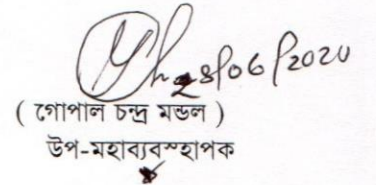 28/06/2020
( গোপাল চন্দ্র মন্ডল )
উপ-মহাব্যবস্হাপক